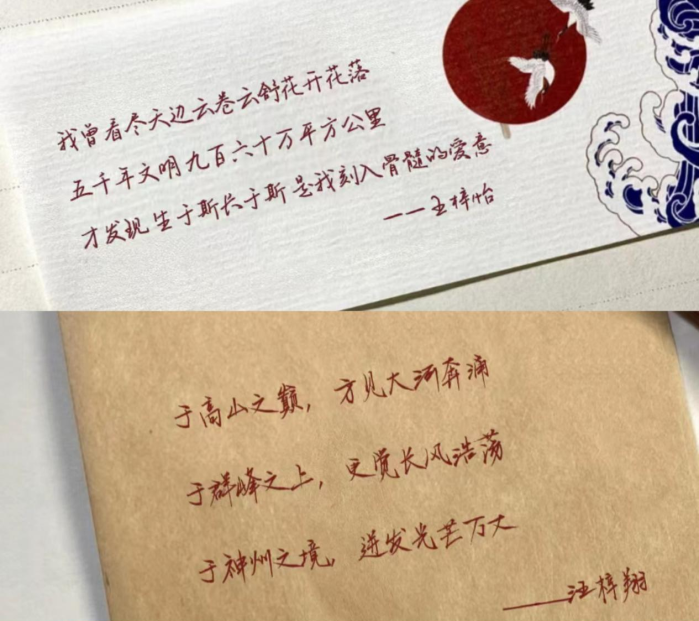 我曾看尽天边云卷云舒花开花落
五千年文明九百六十万平方公里
才发现生于斯长于斯是我刻入骨髓的爱意
——王梓怡
于高山之巅，方见大河奔涌
于群峰之上，更觉长风浩荡
于神州之境，迸发光芒万丈
——汪梓翔